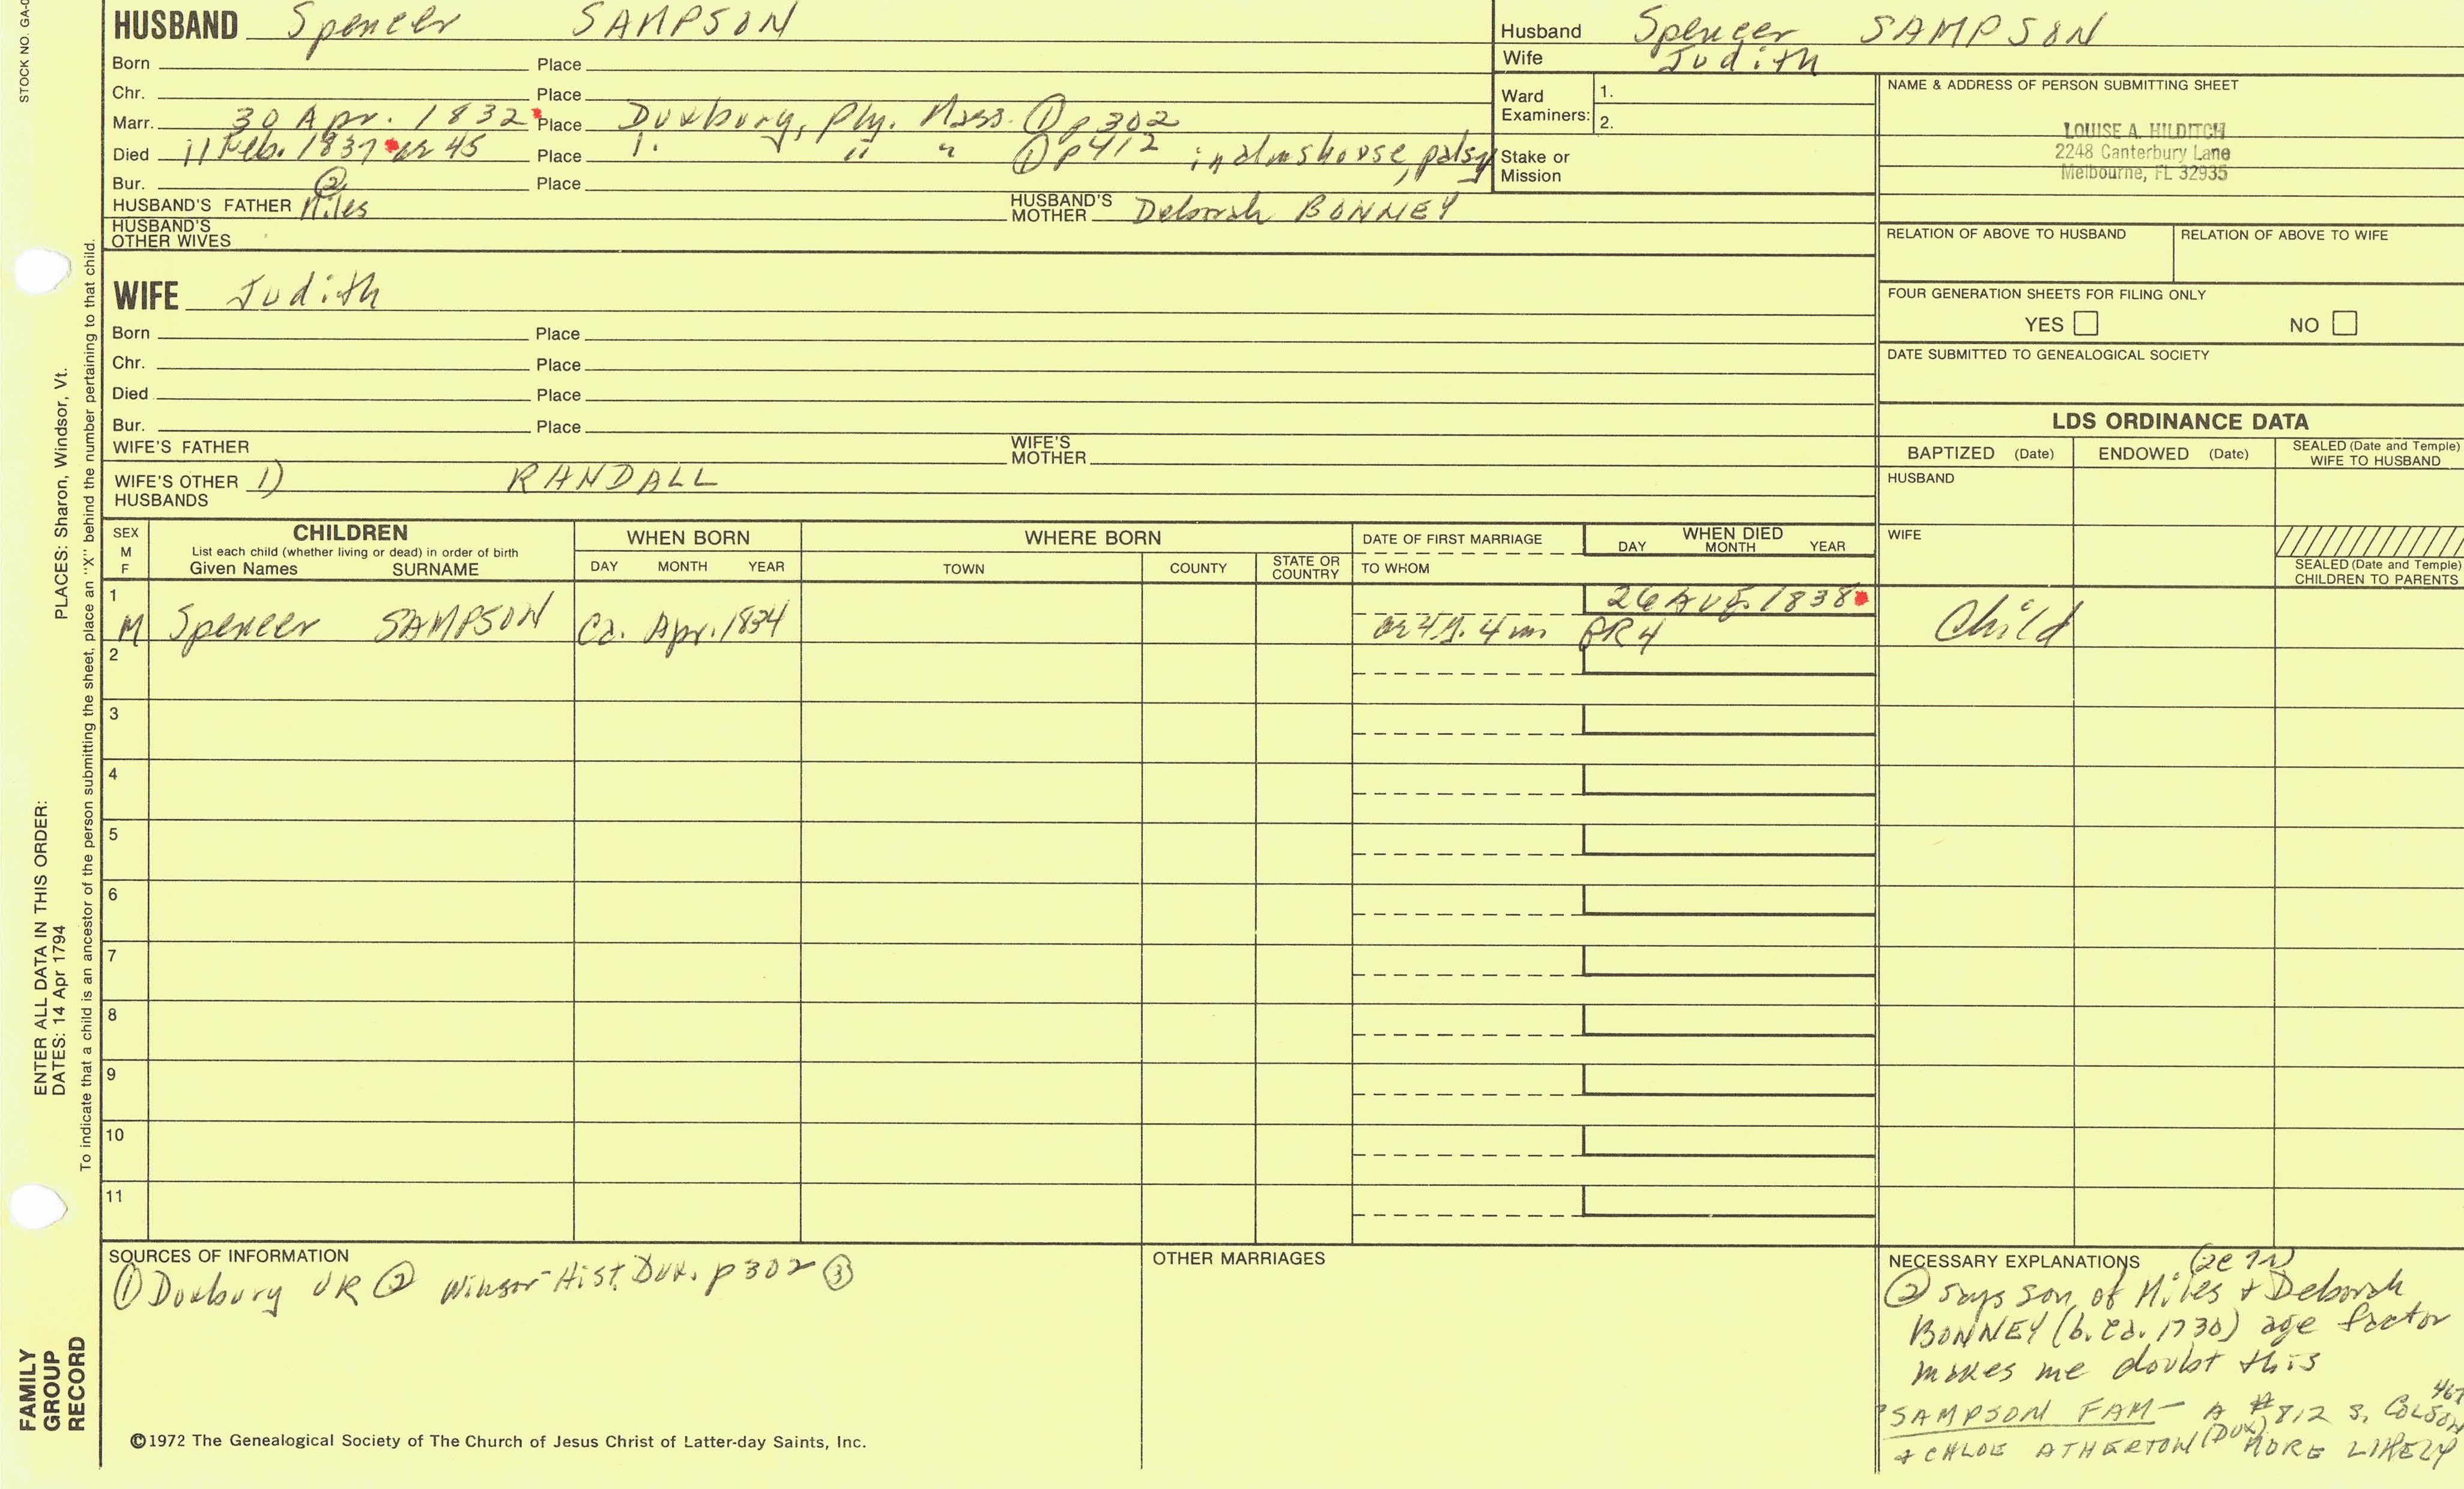 STOCK NO. GA-0
HUSBAND Spencer SAMPSON
Born Place
Chr. Place
Marr. 30 Apr. 1832 Place Duxbury, Ply. Mass. ① p302
Died 11 Feb. 1837 ae 45 Place " " ① p412 in almshouse, palsy
Bur. Place
HUSBAND'S FATHER ② Miles HUSBAND'S MOTHER Deborah BONNEY
HUSBAND'S OTHER WIVES
Husband Spencer SAMPSON
Wife Judith
Ward Examiners: 1.
2.
Stake or Mission
NAME & ADDRESS OF PERSON SUBMITTING SHEET
LOUISE A. HILDITCH
2248 Canterbury Lane
Melbourne, FL 32935
RELATION OF ABOVE TO HUSBAND RELATION OF ABOVE TO WIFE
FOUR GENERATION SHEETS FOR FILING ONLY
YES NO
DATE SUBMITTED TO GENEALOGICAL SOCIETY
WIFE Judith
Born Place
Chr. Place
Died Place
Bur. Place
WIFE'S FATHER WIFE'S MOTHER
WIFE'S OTHER HUSBANDS 1) RANDALL
LDS ORDINANCE DATA
BAPTIZED (Date) ENDOWED (Date) SEALED (Date and Temple) WIFE TO HUSBAND
HUSBAND
WIFE
SEALED (Date and Temple) CHILDREN TO PARENTS
SEX M F
CHILDREN
List each child (whether living or dead) in order of birth
Given Names SURNAME
WHEN BORN
DAY MONTH YEAR
WHERE BORN
TOWN COUNTY STATE OR COUNTRY
DATE OF FIRST MARRIAGE
TO WHOM
WHEN DIED
DAY MONTH YEAR
1 26 Aug. 1838
M Spencer SAMPSON Ca. Apr. 1834 ae 4y. 4m PR4 Child
2
3
4
5
6
7
8
9
10
11
SOURCES OF INFORMATION
① Duxbury VR ② Winsor-Hist. Dux. p302 ③
OTHER MARRIAGES
NECESSARY EXPLANATIONS
② says son of Miles + Deborah
BONNEY (b. ca. 1730) age factor
makes me doubt this
SAMPSON FAM- A #812 S, COLSON 467
+ CHLOE ATHERTON (DUX) MORE LIKELY
©1972 The Genealogical Society of The Church of Jesus Christ of Latter-day Saints, Inc.
ENTER ALL DATA IN THIS ORDER:
DATES: 14 Apr 1794 PLACES: Sharon, Windsor, Vt.
To indicate that a child is an ancestor of the person submitting the sheet, place an "X" behind the number pertaining to that child.
FAMILY
GROUP
RECORD